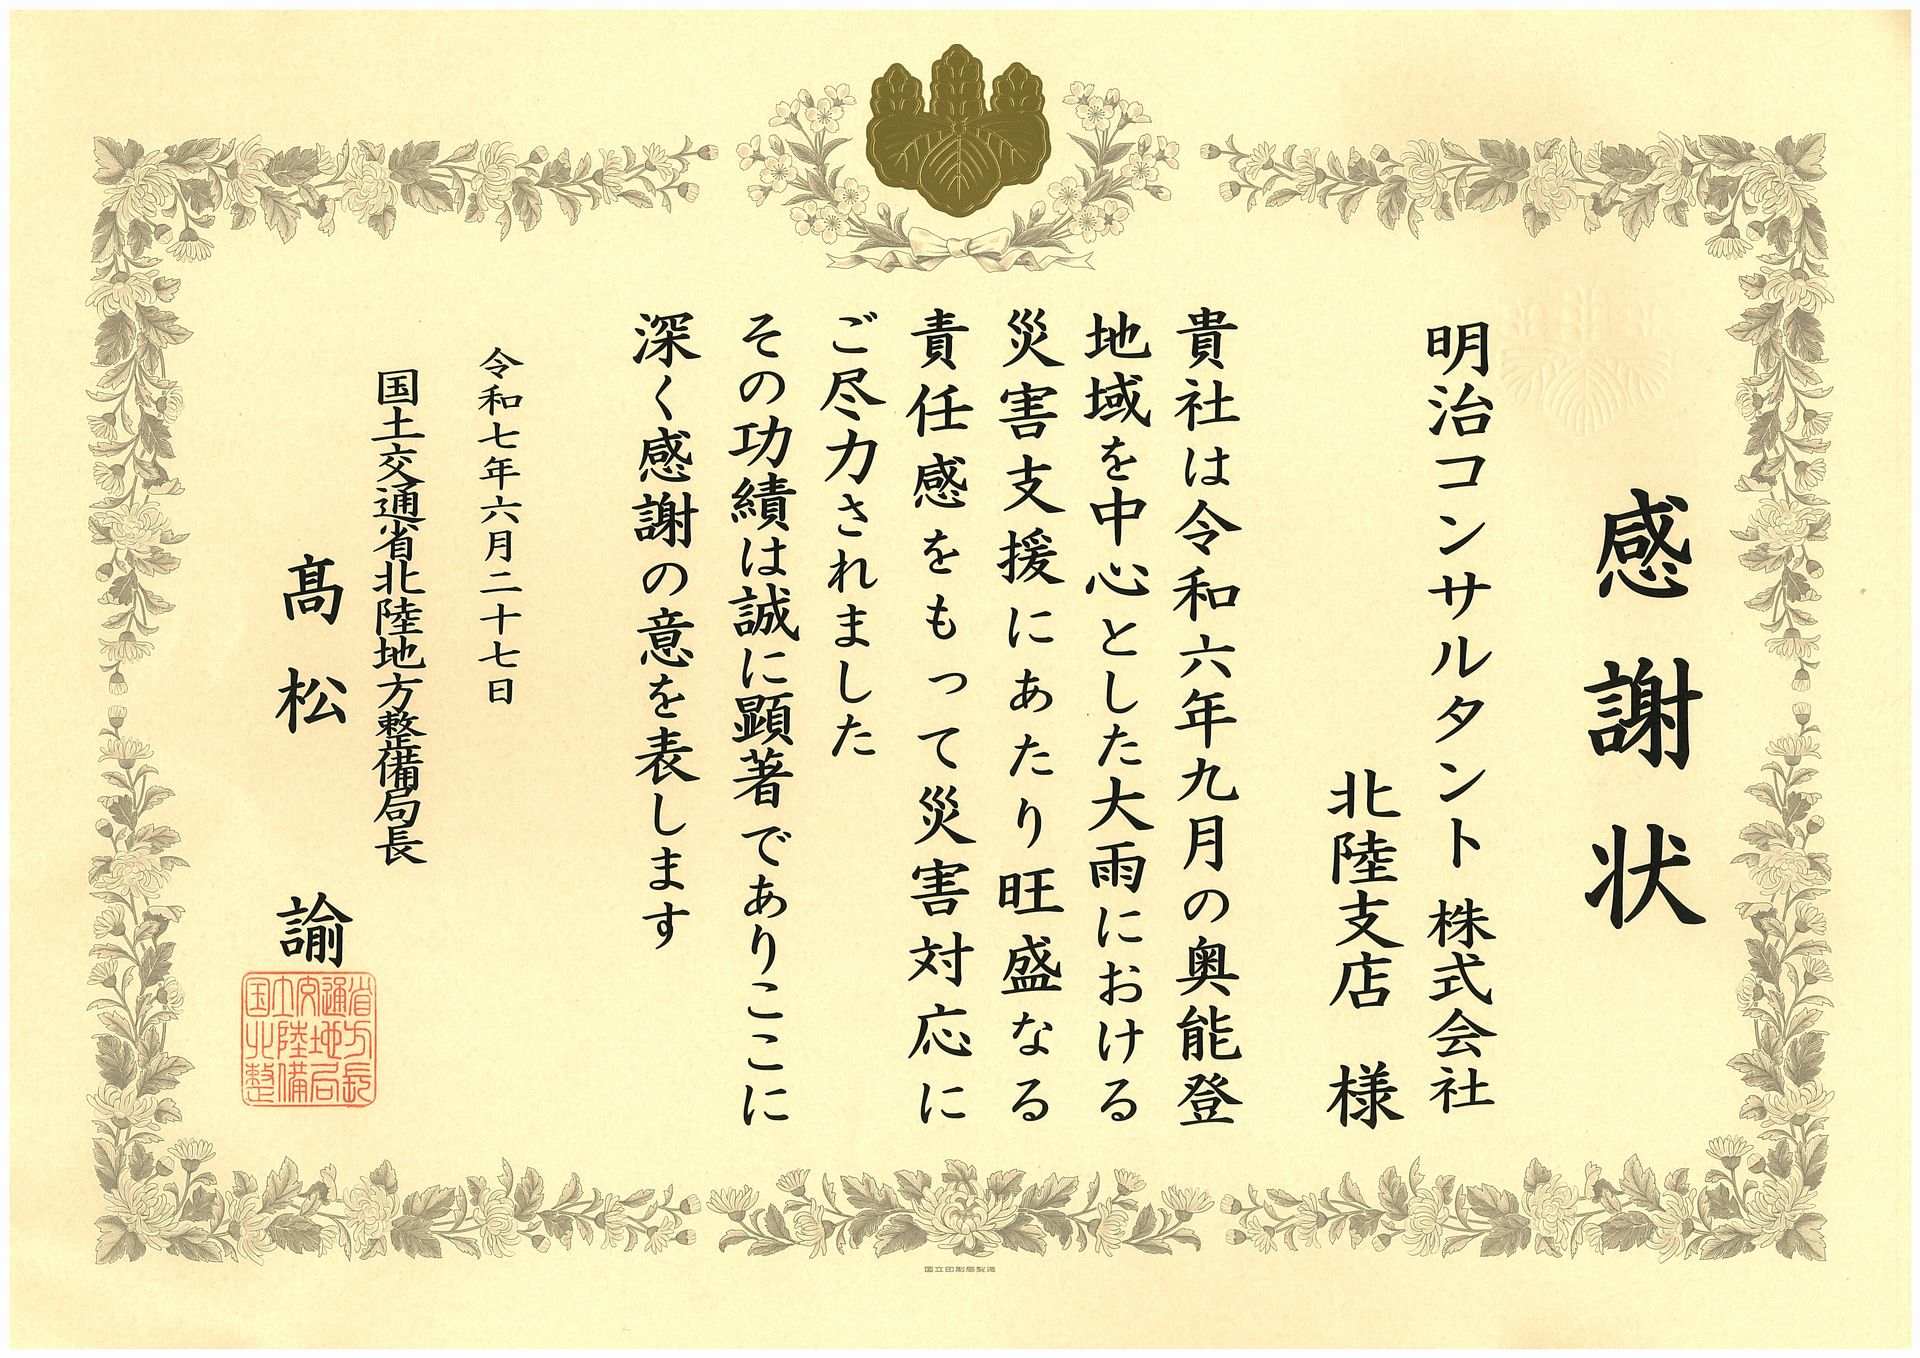 感謝状
明治コンサルタント株式会社
北陸支店 様
貴社は令和六年九月の奥能登
地域を中心とした大雨における
災害支援にあたり旺盛なる
責任感をもって災害対応に
ご尽力されました
その功績は誠に顕著でありここに
深く感謝の意を表します
令和七年六月二十七日
国土交通省北陸地方整備局長
髙松 諭
国土交通省
北陸地方
整備局長
国立印刷局製造